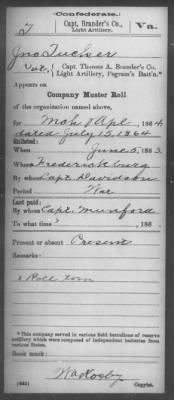 Confederate.
T
Capt. Brander's Co.,
Light Artillery.
Va.
Jno Tucker
Pvt., Capt. Thomas A. Brander's Co.,
Light Artillery, Pegram's Batt'n.*
Appears on
Company Muster Roll
of the organization named above,
for Mch & Apl, 1864
dated July 15, 1864
Enlisted:
When June 5, 1863.
Where Fredericksburg
By whom Capt. Davidson
Period War
Last paid:
By whom Capt. Munford
To what time? , 186 .
Present or absent Present
Remarks:
x Roll torn
*This company served in various field battalions of reserve
artillery which were composed of independent batteries from
various States.
Book mark:
(642)
Copyist.